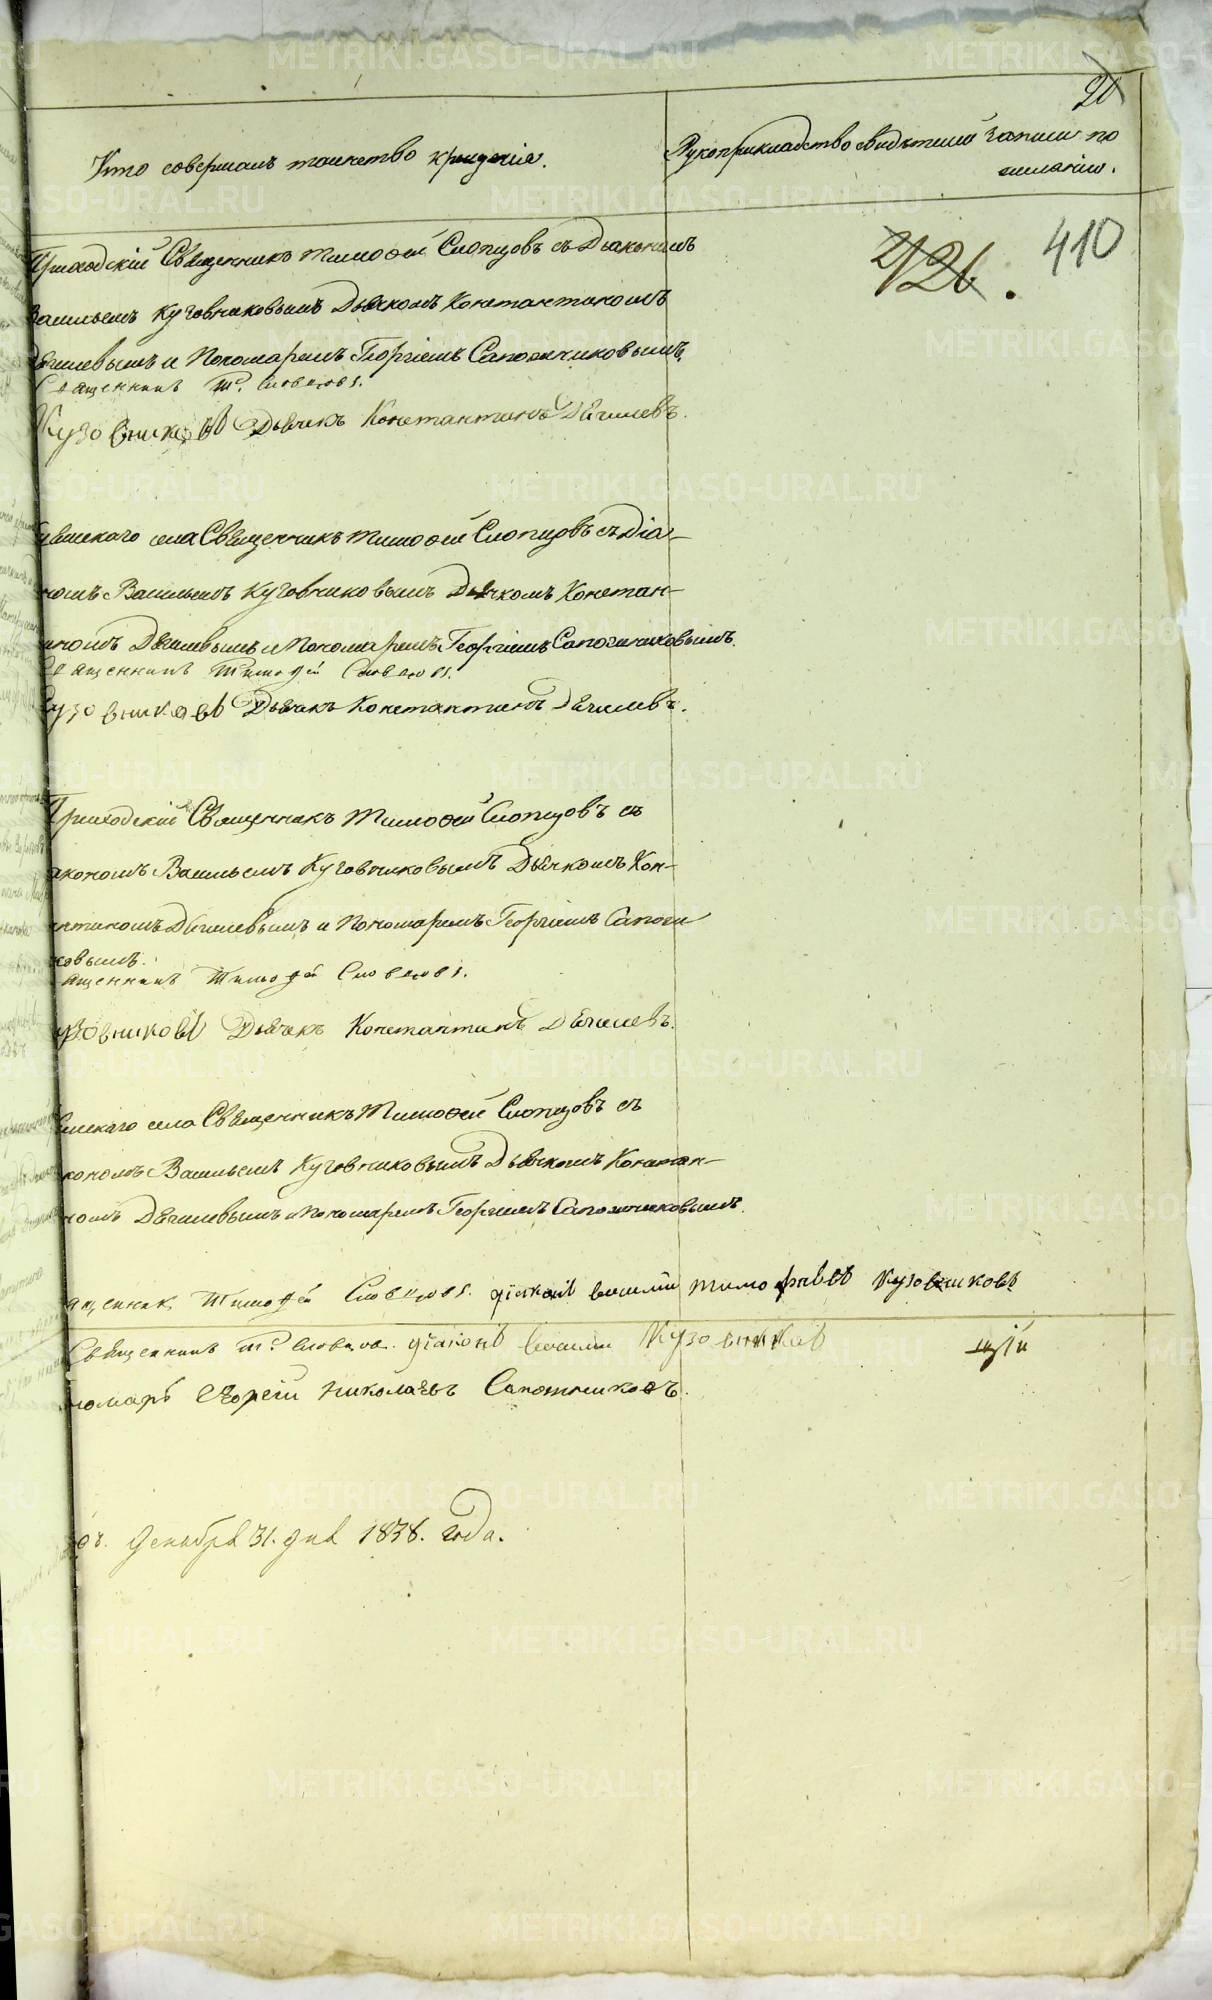 20
Кто совершалъ таинство крещенія.
Рукоприкладство свидѣтелей записи по
желанію.
410
2126.
Приходскій Священникъ Тимофей Словцовъ съ Дьякономъ
Васильемъ Кузовниковымъ Дьячкомъ Константиномъ
и Пономаремъ Георгіемъ Сапожниковымъ
Священникъ Т. Словцовъ.
Кузовниковъ Дьячекъ Константинъ
села Священникъ Тимофей Словцовъ съ Діа-
номъ Васильемъ Кузовниковымъ Дьячкомъ Констан-
иномъ и Пономаремъ Георгіемъ Сапожниковымъ.
Священникъ Тимофей Словцовъ.
Кузовниковъ Дьячекъ Константинъ
Приходскій Священникъ Тимофей Словцовъ съ
акономъ Васильемъ Кузовниковымъ Дьячкомъ Кон-
нтиномъ и Пономаремъ Георгіемъ Сапожни
ковымъ.
ященникъ Тимофей Словцовъ.
узовниковъ Дьячекъ Константинъ
села Священникъ Тимофей Словцовъ съ
кономъ Васильемъ Кузовниковымъ Дьячкомъ Констан-
номъ и Пономаремъ Георгіемъ Сапожниковымъ.
ященник Тимофей Словцовъ. діаконъ василій тимофѣевъ Кузовниковъ
Священникъ Т. Словцов. діаконъ василій Кузовниковъ
номарь Егоргій Николаевъ Сапожниковъ.
декабря 31. дня 1838. года.
METRIKI.GASO-URAL.RU